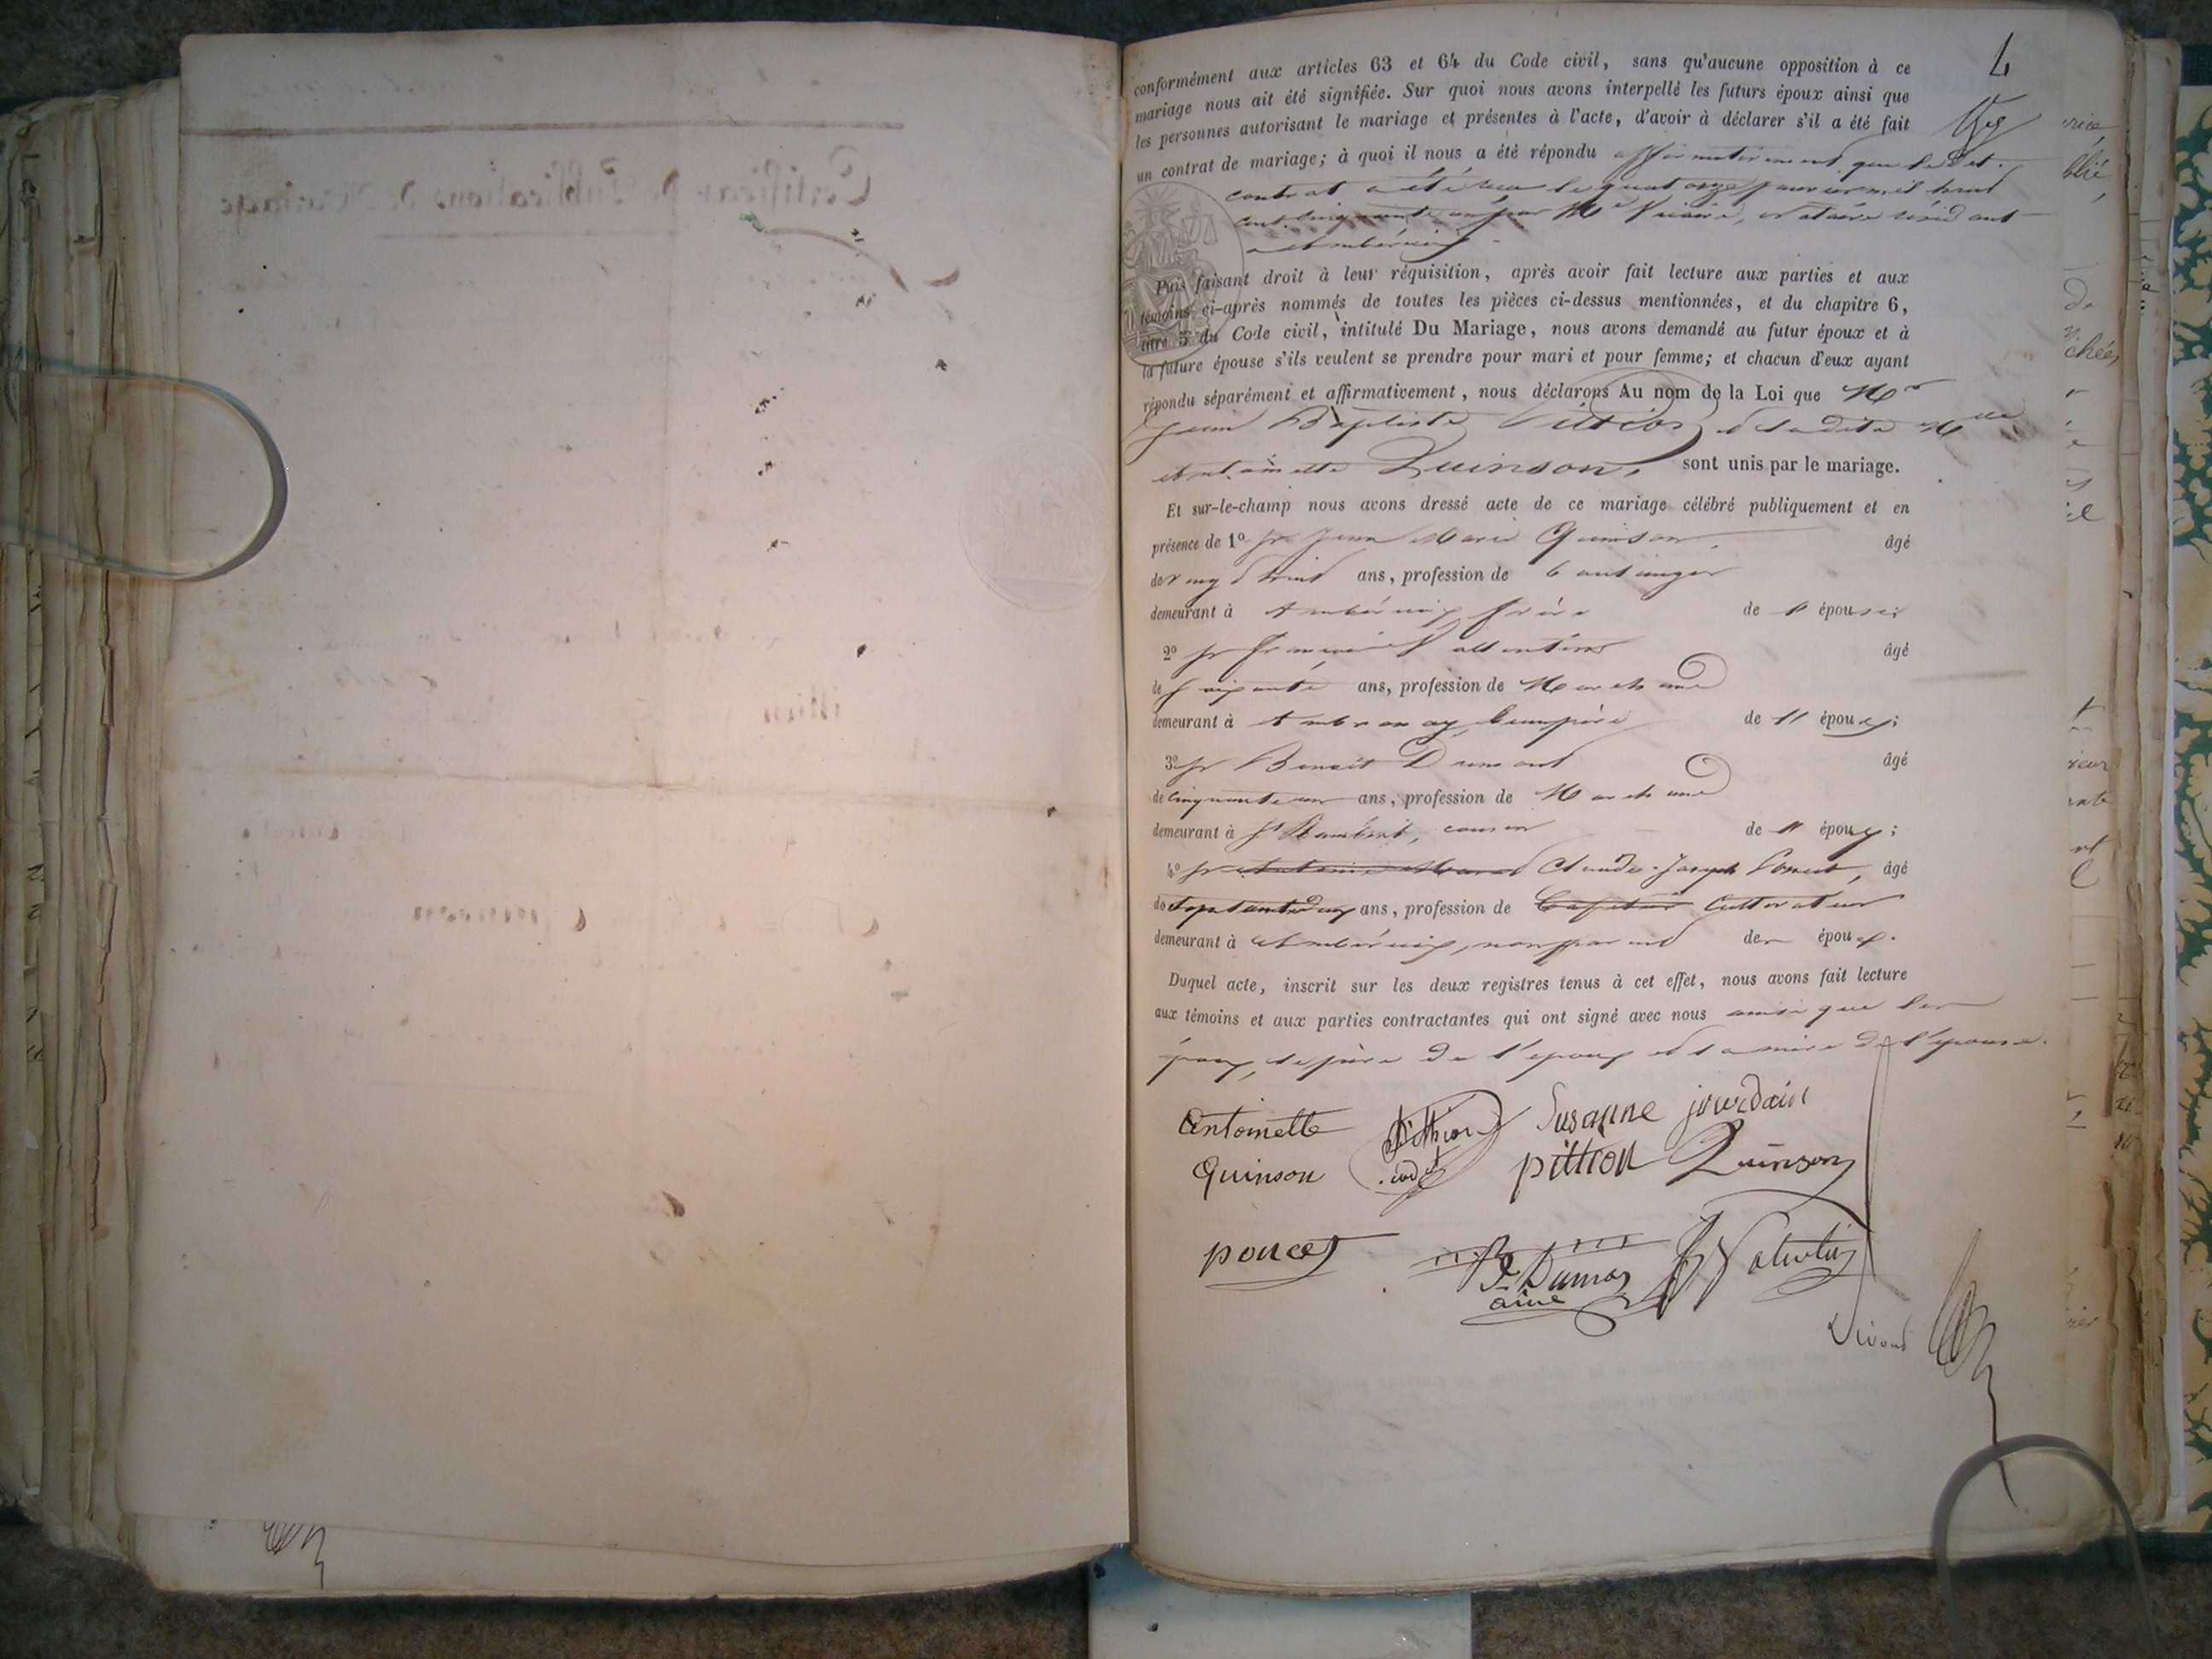 Certificat de Publications de Mariage
4
conformément aux articles 63 et 64 du Code civil, sans qu'aucune opposition à ce
mariage nous ait été signifiée. Sur quoi nous avons interpellé les futurs époux ainsi que
les personnes autorisant le mariage et présentes à l'acte, d'avoir à déclarer s'il a été fait
un contrat de mariage; à quoi il nous a été répondu affirmativement que ledit
contrat a été reçu le quatorze janvier mil huit
cent cinquante un par Me notaire résidant
à Ambérieux
Puis faisant droit à leur réquisition, après avoir fait lecture aux parties et aux
témoins ci-après nommés de toutes les pièces ci-dessus mentionnées, et du chapitre 6,
titre 5 du Code civil, intitulé Du Mariage, nous avons demandé au futur époux et à
la future épouse s'ils veulent se prendre pour mari et pour femme; et chacun d'eux ayant
répondu séparément et affirmativement, nous déclarons Au nom de la Loi que Mr
Jean Baptiste Pittion et ladite Mlle
Antoinette Quinson, sont unis par le mariage.
Et sur-le-champ nous avons dressé acte de ce mariage célébré publiquement et en
présence de 1o Sr Jean Marie Quinson, âgé
de vingt huit ans, profession de boulanger
demeurant à Ambérieux frère de l' épouse;
2o Sr François Valentin âgé
de soixante ans, profession de Marchand
demeurant à Ambronay, beaupère de l' époux;
3o Sr Benoit Dumont âgé
de cinquante un ans, profession de Marchand
demeurant à St Rambert, cousin de l' époux;
4o Sr Claude-Joseph Poncet, âgé
de ans, profession de Cultivateur
demeurant à Ambérieux, non parent des époux.
Duquel acte, inscrit sur les deux registres tenus à cet effet, nous avons fait lecture
aux témoins et aux parties contractantes qui ont signé avec nous ainsi que les
époux, le père de l'époux et la mère de l'épouse.
Antoinette Pittion Susanne jourdain
Quinson cadet pittion Quinson
poncet Dumas Valentin
ainé